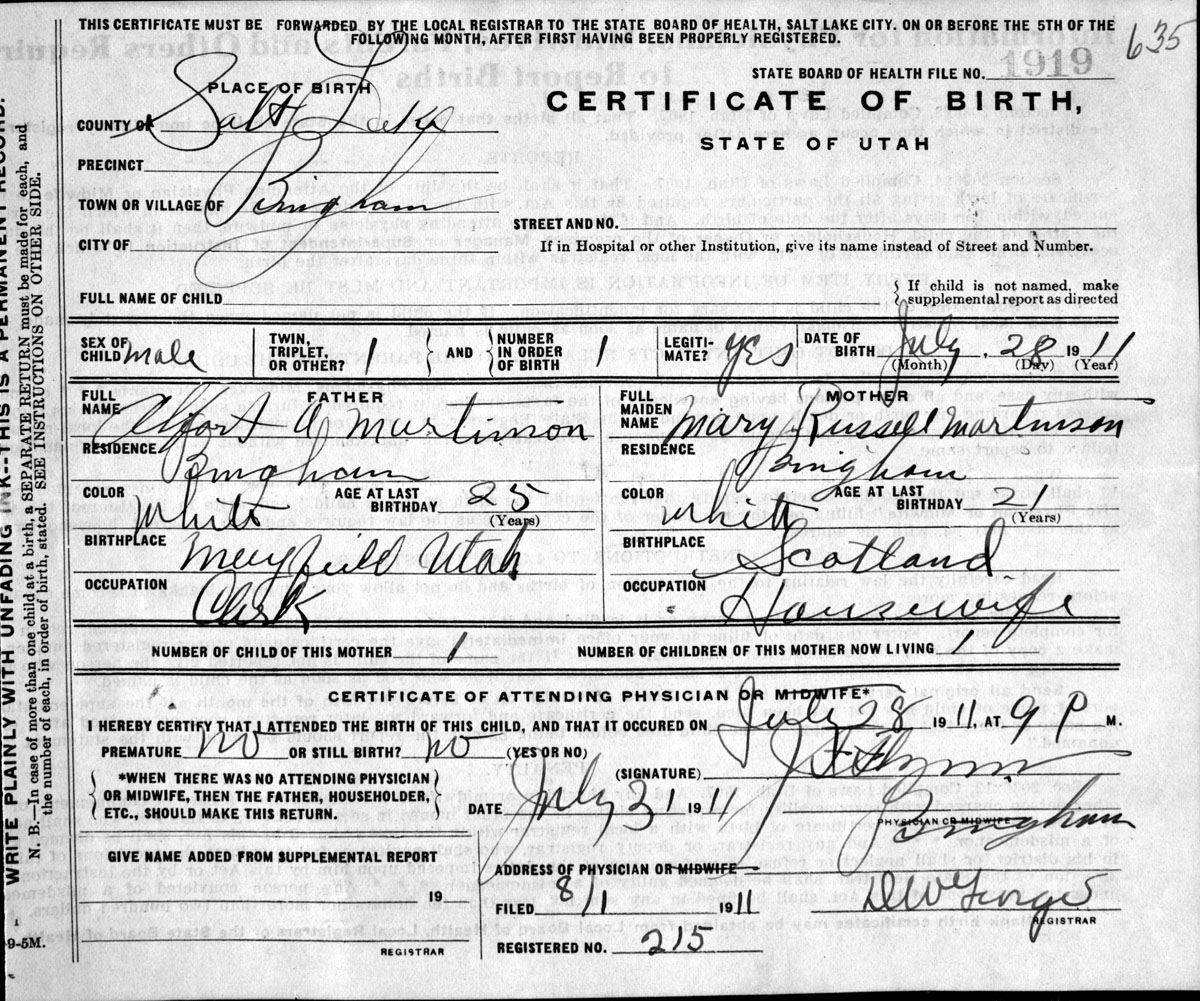 THIS CERTIFICATE MUST BE FORWARDED BY THE LOCAL REGISTRAR TO THE STATE BOARD OF HEALTH, SALT LAKE CITY. ON OR BEFORE THE 5TH OF THE
FOLLOWING MONTH, AFTER FIRST HAVING BEEN PROPERLY REGISTERED.
635
STATE BOARD OF HEALTH FILE NO. 1919
PLACE OF BIRTH
CERTIFICATE OF BIRTH,
STATE OF UTAH
COUNTY OF Salt Lake
PRECINCT
TOWN OR VILLAGE OF Bingham
STREET AND NO.
CITY OF
If in Hospital or other Institution, give its name instead of Street and Number.
FULL NAME OF CHILD
If child is not named, make
supplemental report as directed
SEX OF CHILD male
TWIN, TRIPLET, OR OTHER? 1
AND
NUMBER IN ORDER OF BIRTH 1
LEGITIMATE? yes
DATE OF BIRTH July, 28 1911
(Month) (Day) (Year)
FATHER
FULL NAME Alfort A Martinson
MOTHER
FULL MAIDEN NAME Mary Russell Martinson
RESIDENCE Bingham
RESIDENCE Bingham
COLOR White
AGE AT LAST BIRTHDAY 25
(Years)
COLOR White
AGE AT LAST BIRTHDAY 21
(Years)
BIRTHPLACE Mayfield Utah
BIRTHPLACE Scotland
OCCUPATION Clerk
OCCUPATION Housewife
NUMBER OF CHILD OF THIS MOTHER 1
NUMBER OF CHILDREN OF THIS MOTHER NOW LIVING 1
CERTIFICATE OF ATTENDING PHYSICIAN OR MIDWIFE*
I HEREBY CERTIFY THAT I ATTENDED THE BIRTH OF THIS CHILD, AND THAT IT OCCURED ON July 28 1911, AT 9 P M.
PREMATURE no OR STILL BIRTH? no (YES OR NO)
*WHEN THERE WAS NO ATTENDING PHYSICIAN
OR MIDWIFE, THEN THE FATHER, HOUSEHOLDER,
ETC., SHOULD MAKE THIS RETURN.
(SIGNATURE) Flynn
PHYSICIAN OR MIDWIFE
DATE July 3 1911
GIVE NAME ADDED FROM SUPPLEMENTAL REPORT
19
REGISTRAR
ADDRESS OF PHYSICIAN OR MIDWIFE Bingham
FILED 8/1 1911
REGISTRAR
REGISTERED NO. 215
WRITE PLAINLY WITH UNFADING INK--THIS IS A PERMANENT RECORD.
N. B.—In case of more than one child at a birth, a SEPARATE RETURN must be made for each, and
the number of each, in order of birth, stated. SEE INSTRUCTIONS ON OTHER SIDE.
9-5M.